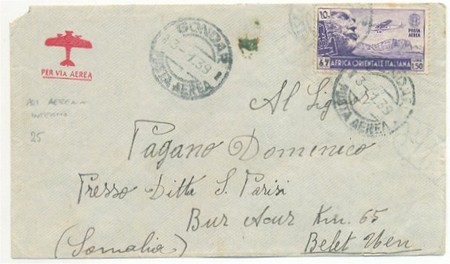 GONDAR
3-1.39
POSTA AEREA
10
POSTA AEREA
AFRICA ORIENTALE ITALIANA
GONDAR
3-1.39
POSTA AEREA
PER VIA AEREA
Al Sig
25
Pagano Domenico
Presso Ditta S. Parisi
Bur Acur Km. 65
(Somalia) Belet Uen